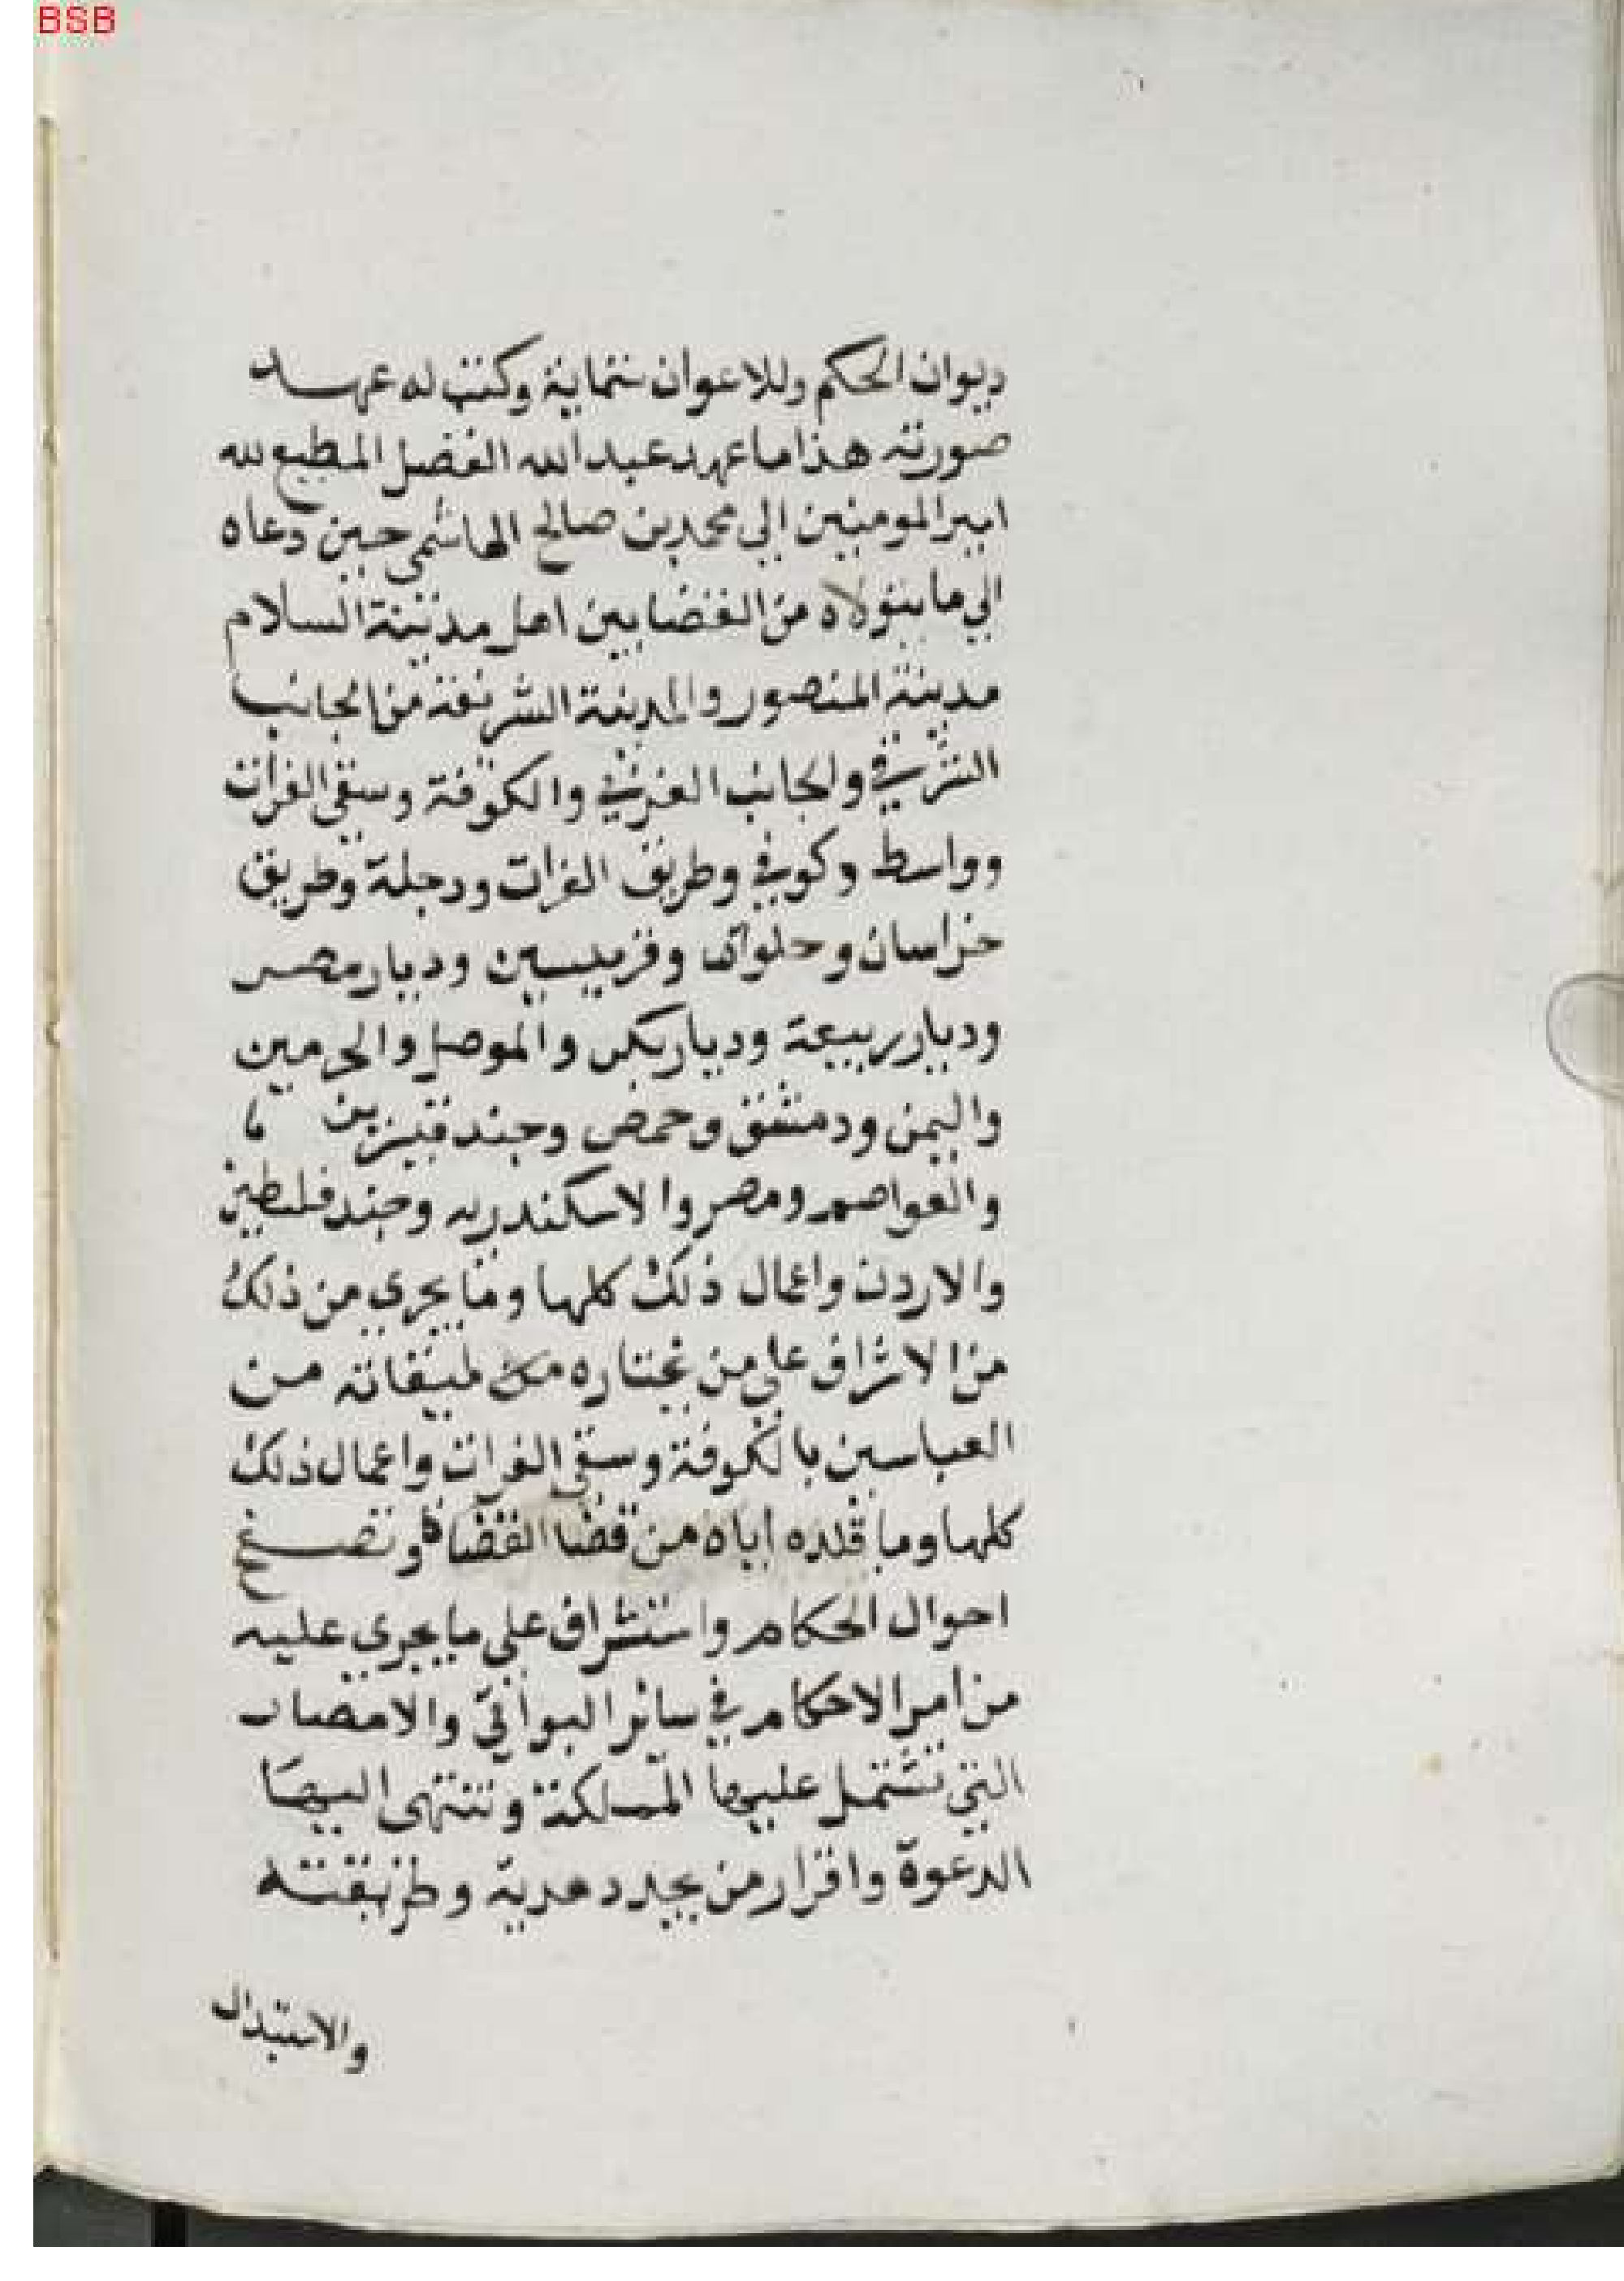 BSB
ديوان الحكم وللاعوان ستماية وكتب له عهد
صورته هذا ما عهد عبد الله الفضل المطيع لله
امير المومنين الي محمد بن صالح الهاشمي حين دعاه
الي ما يتولاه من القضا بين اهل مدينة السلام
مدينة المنصور والمدينة الشرقية من الجانب
الشرقي والجانب الغربي والكوفة وسقي الفرات
وواسط وكوفي وطريق الفرات ودجلة وطريق
خراسان وحلوان وقرميسين وديار مصر
وديار ربيعة وديار بكر والموصل والحرمين
واليمن ودمشق وحمص وجند قنسرين
والعواصم ومصر والاسكندريه وجند فلسطين
والاردن واعمال ذلك كلها وما يجري من ذلك
من الاشراف علي من يختاره من طبقاته من
العباسين بالكوفة وسقي الفرات واعمال ذلك
كلها وما قلده اياه من قضا القضاة وتصفح
احوال الحكام واستشراف علي ما يجري عليه
من امر الاحكام في سائر النواحي والامصار
التي تشتمل عليها المملكة وتنتهي اليها
الدعوة واقرار من يحمد هديه وطريقته
والاستبدال